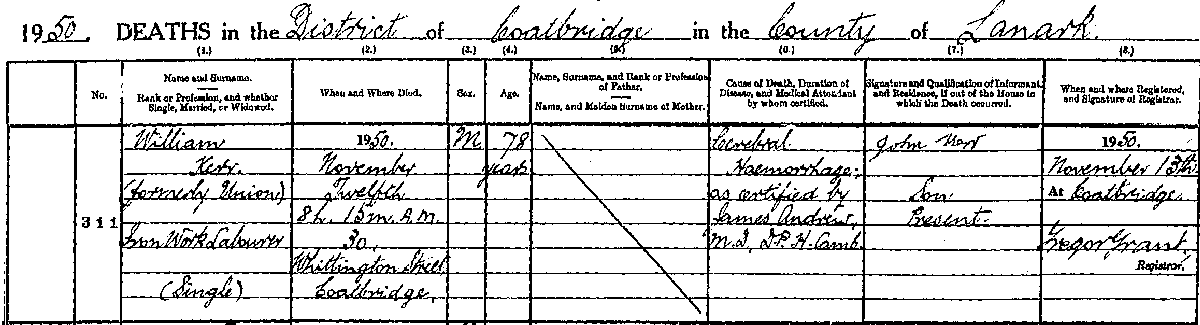 1950. DEATHS in the District of Coatbridge in the County of Lanark.
(1.) (2.) (3.) (4.) (5.) (6.) (7.) (8.)
No.
Name and Surname.
Rank or Profession, and whether
Single, Married, or Widowed.
When and Where Died.
Sex.
Age.
Name, Surname, and Rank or Profession
of Father.
Name, and Maiden Surname of Mother.
Cause of Death, Duration of
Disease, and Medical Attendant
by whom certified.
Signature and Qualification of Informant
and Residence, if out of the House in
which the Death occurred.
When and where Registered,
and Signature of Registrar.
311
William
Kerr.
(formerly Union)
Iron Work Labourer
(Single)
1950.
November
Twelfth
8h. 15m. A.M.
30,
Whittington Street
Coatbridge.
M
78
years
Cerebral
Haemorrhage;
as certified by
James Andrew,
M.D., D.P.H. Camb.
John Kerr
Son
Present.
1950.
November 13th
At Coatbridge.
Gregor Grant
Registrar.